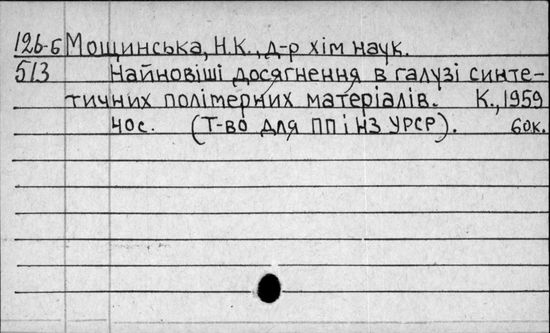 126-б Мощинська, Н.К., д-р хім наук.
513 Найновіші досягнення в галузі синте-
тичних полімерних матеріалів. К., 1959
40с. (Т-во для ПП і НЗ УРСР). 60к.